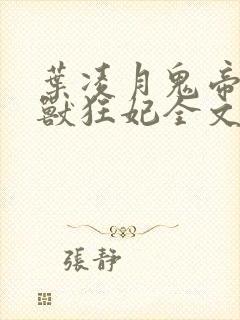 葉凌月鬼帝
獸狂妃全文
張靜